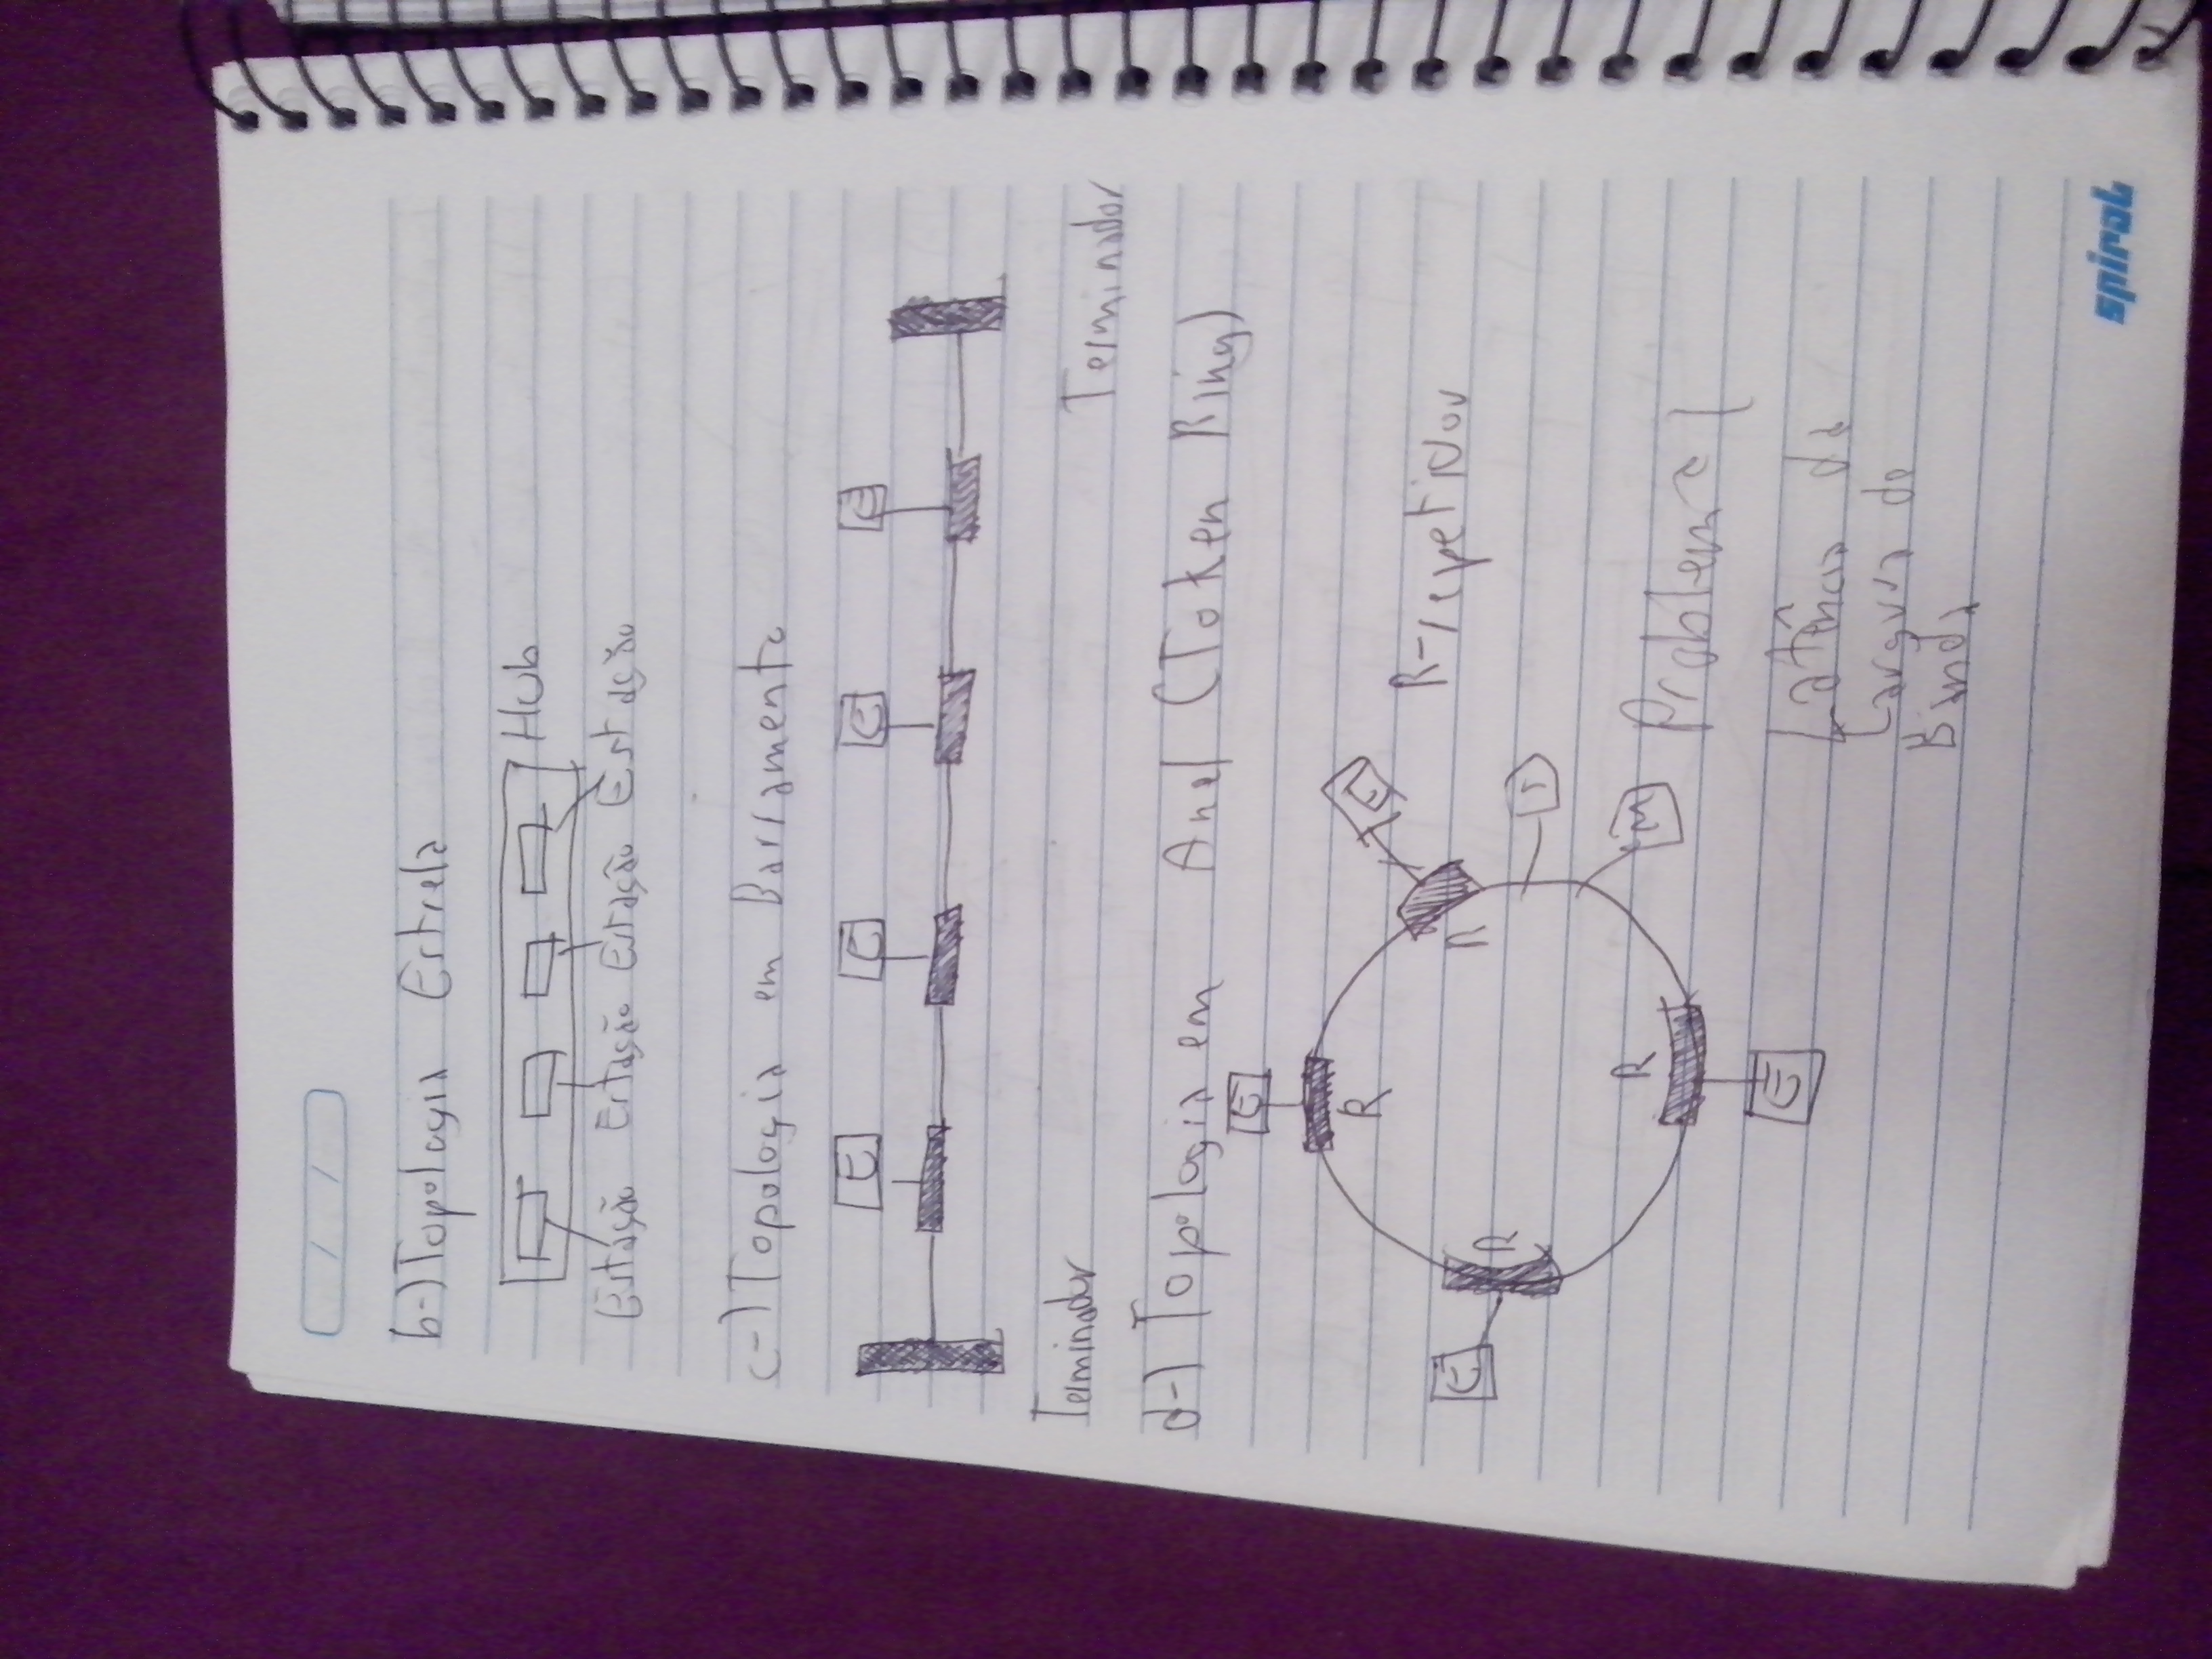 b-) Topologia Estrela
Hub
Estação Estação Estação Estação
c-) Topologia em Barramento
E E E E
Terminador Terminador
d-) Topologia em Anel (Token Ring)
E
R
E
R
R-repetidor
E
R
T
R
M
Problema
E
Latência da
Largura de
Banda
spiral